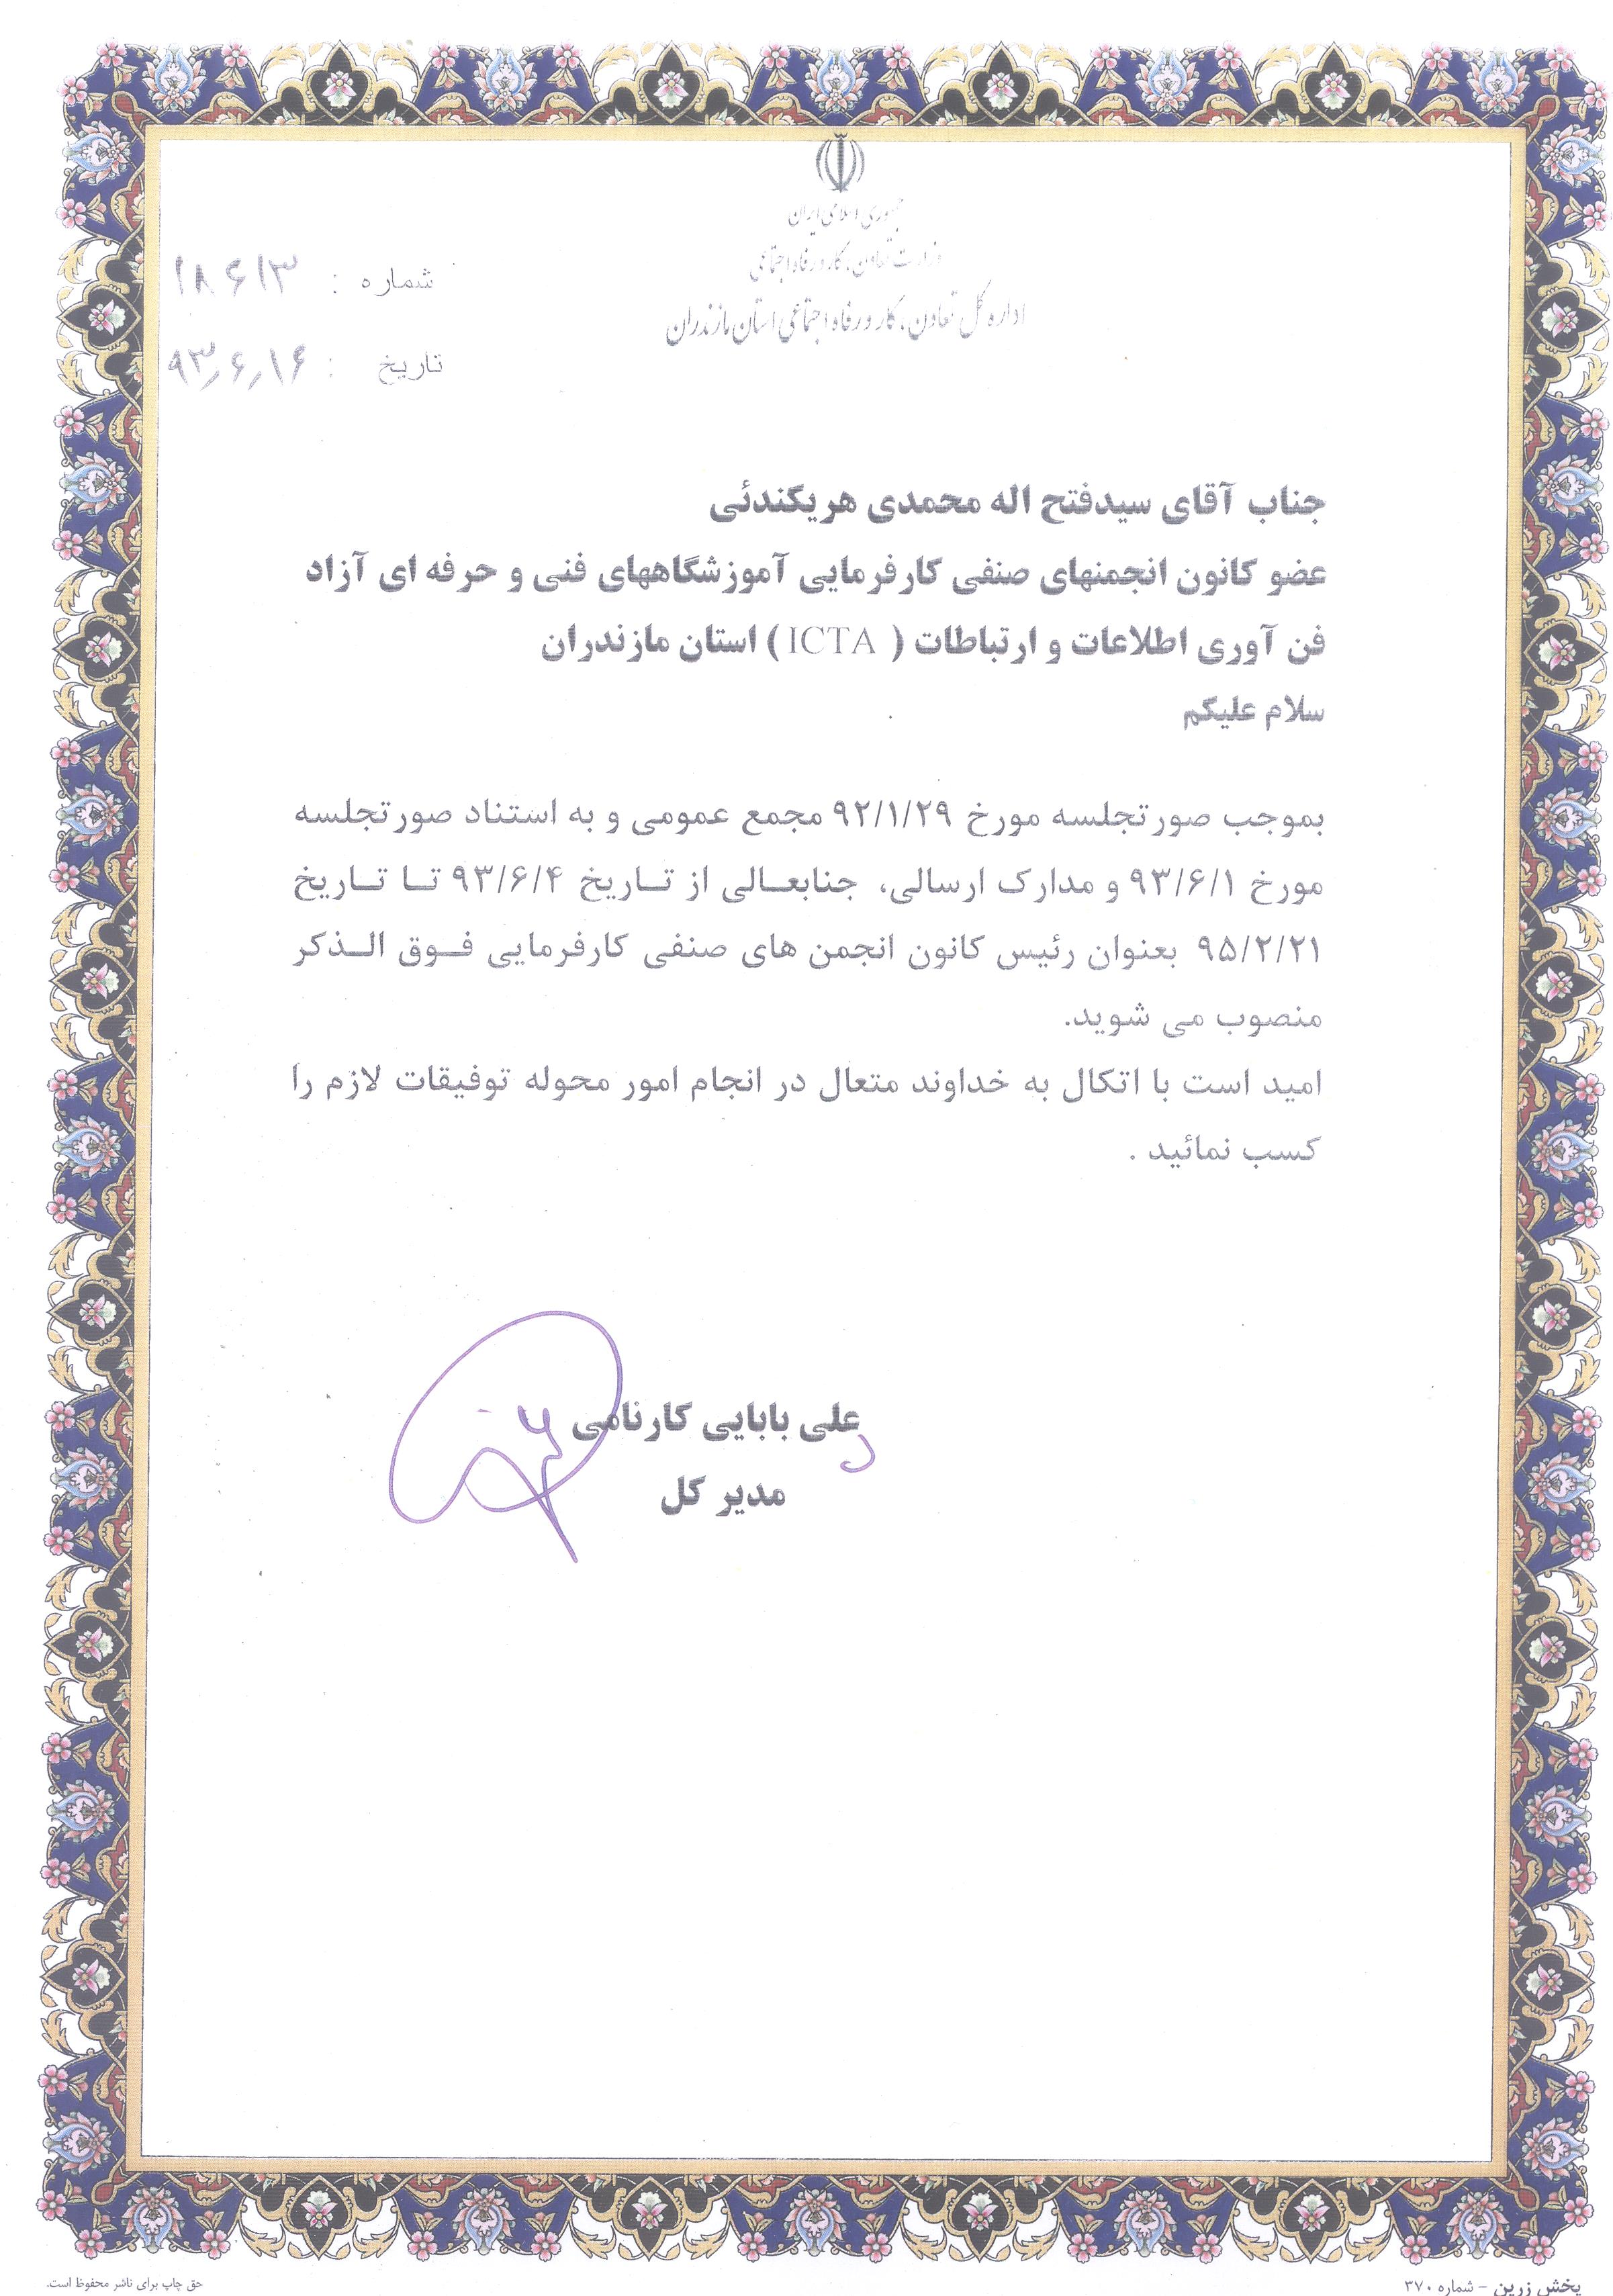 جمهوری اسلامی ایران
وزارت تعاون، کار و رفاه اجتماعی
اداره کل تعاون، کار و رفاه اجتماعی استان مازندران
شماره : ۱۸۶۱۳
تاریخ : ۹۳٫۶٫۱۶
جناب آقای سیدفتح اله محمدی هریکندئی
عضو کانون انجمنهای صنفی کارفرمایی آموزشگاههای فنی و حرفه ای آزاد
فن آوری اطلاعات و ارتباطات ( ICTA ) استان مازندران
سلام علیکم
بموجب صورتجلسه مورخ ۹۲/۱/۲۹ مجمع عمومی و به استناد صورتجلسه
مورخ ۹۳/۶/۱ و مدارک ارسالی، جنابعـالی از تـاریخ ۹۳/۶/۴ تـا تـاریخ
۹۵/۲/۲۱ بعنوان رئیس کانون انجمن های صنفی کارفرمایی فـوق الـذکر
منصوب می شوید.
امید است با اتکال به خداوند متعال در انجام امور محوله توفیقات لازم را
کسب نمائید .
علی بابایی کارنامی
مدیر کل
پخش زرین - شماره ۳۷۰
حق چاپ برای ناشر محفوظ است.